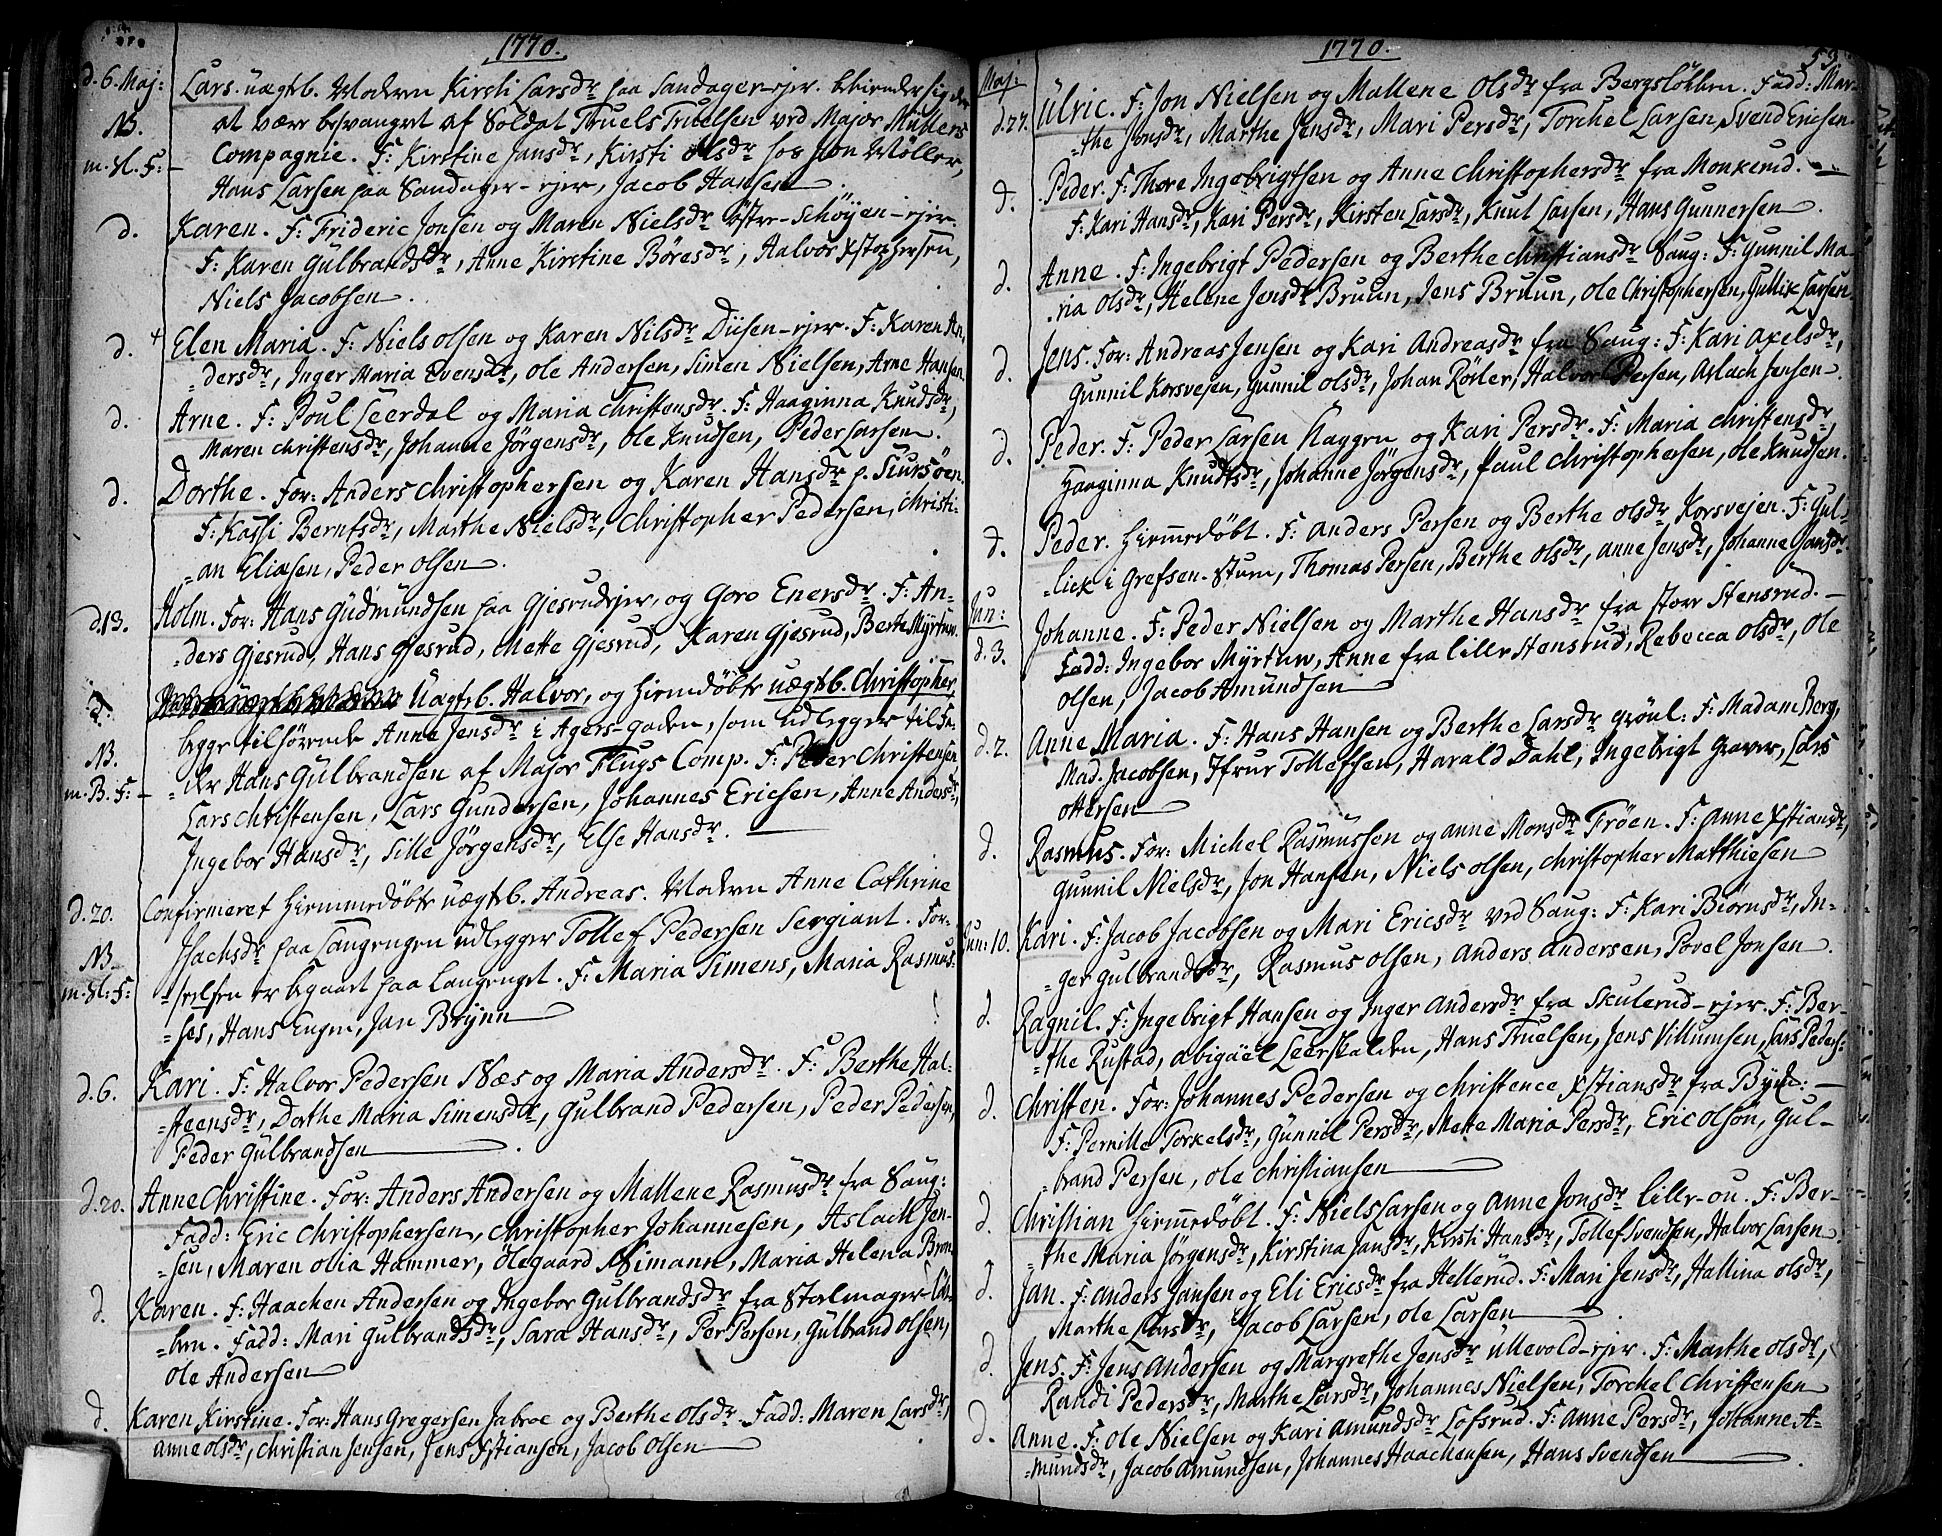 1770.
d. 6. Maj: Lars. uægtb. Moderen Kirsti Larsdr paa Sandager-ejer. bekiender sig
NB. at være besvangret af Soldat Truels Truelsen ved Major Müllers
m. Sl. F: Compagnie. F: Kirstine Jansdr, Kirsti Olsdr hos Jon Møller,
Hans Larsen paa Sandager-ejer, Jacob Hansen.
d. Karen. F: Frideric Jonsen og Maren Nielsdr östre-Schöyen-ejer.
F: Karen Gulbrandsdr, Anne Kirstine Böresdr, Halvor Xstophersen,
Niels Jacobsen.
d. Elen Maria. F: Niels olsen og Karen Nilsdr Diisen-ejer. F: Karen An-
-dersdr, Inger Maria Evensdr, Ole Andersen, Simen Nielsen, Arne Hansen.
d. Arne. F: Poul Leerdal og Maria Christensdr. F: Haaginna Knudsdr,
Maren christensdr, Johanne Jörgensdr, Ole Knudsen, Peder Larsen.
d. Dorthe. For: Anders Christophersen og Karen Hansdr p. Siursöen.
F: Kassi Berntsdr, Marthe Nielsdr, Christopher Pedersen, Christi-
-an Eliasen, Peder Olsen.
d. 13. Holm. For: Hans Gudmundsen paa Gjesrudejer, og Goro Enersdr. F: An-
-ders Gjesrud, Hans Gjesrud, Mette Gjesrud, Karen Gjesrud, Berth Myrtuw.
d. Uægtb. Halvor, og hiemdöbte uægtb. Christopher,
begge tilhörende Anne Jensdr i Agers-gaden, som udlegger til Fa-
NB. -der Hans Gulbrandsen af Major Flugs Comp. F: Peder Christensen
m. B. F: Lars Christensen, Lars Gundersen, Johannes Ericsen, Anne Andersdr,
Ingebor Hansdr, Sille Jörgensdr, Else Hansdr.
d. 20. Confirmeret hiemmedöbte uægtb. Andreas. Moderen Anne Cathrine
NB. Isachsdr paa Langengen udlegger Tollef Pedersen Sergiant. For-
m. Sl: F: -seelsen er begaaet paa Langenget. F: Maria Simens, Maria Rasmus-
-ses, Hans Engen, Jan Brynn
d. 6. Kari. F: Halvor Pedersen Næs og Maria Andersdr. F: Berthe Hal-
-steensdr, Dorthe Maria Simensdr, Gulbrand Pedersen, Peder Pedersen,
Peder Gulbrandsen.
d. 20. Anne Christine. For: Anders Andersen og Mallene Rasmusdr fra Saug:
Fadd: Eric Christophersen, Christopher Johannesen, Aslach Jen-
-sen, Maren olia Hammer, Ölegaard Nimann, Maria Helena Brun
d. Karen. F: Haachen Andersen og Ingebor Gulbrandsdr fra Stodmager-Lök-
-ken. Fadd: Mari Gulbrandsdr, Sara Hansdr, Per Persen, Gulbrand olsen,
Ole Andersen
d. Karen Kirstine. For: Hans Gregersen Jabroe og Berthe Olsdr. Fadd: Maren Larsdr,
Anne olsdr, Christian Jensen, Jens Xstiansen, Jacob Olsen.
1770. 53.
Maj:
d. 27. Ulric. F: Jon Nielsen og Mallene Olsdr fra Bergslökken. Fadd: Mar-
-the Jonsdr, Marthe Jensdr, Mari Persdr, Torchel Larsen, Svend Ericsen.
d. Peder. F: Thore Ingebrigtsen og Anne Christophersdr fra Monkerud.
F: Kari Hansdr, Kari Persdr, Kirsten Larsdr, Knut Larsen, Hans Gunnersen.
d. Anne. F: Ingebrigt Pedersen og Berthe Christiansdr Saug: F: Gunnil Ma-
-ria Olsdr, Helene Jensdr Bruun, Jens Bruun, Ole Christophersen, Gullix Larsen.
d. Jens. For: Andreas Jensen og Kari Andreasdr fra Saug: F: Kari Axelsdr,
Gunnil Korsvejen, Gunnil olsdr, Johan Röiler, Halvor Persen, Aslach Jensen.
d. Peder. F: Peder Larsen Haggen og Kari Persdr. F: Maria Christensdr,
Haaginna Knudtsdr, Johanne Jörgensdr, Paul Christophersen, Ole Knudsen.
d. Peder. hiemmedöbt. F: Anders Persen og Berthe Olsdr Korsvejen. F: Gul-
-lick i Grefsen-stuen, Thomas Persen, Berthe olsdr, Anne Jensdr, Johanne Jansdr.
Jun:
d. 3. Johanne. F: Peder Nielsen og Marthe Hansdr fra store Stensrud.
Fadd: Ingebor Myrtuw, Anne fra lille Stensrud, Rebecca Olsdr, Ole
Olsen, Jacob Amundsen
d. 2. Anne Maria. F: Hans Hansen og Berthe Larsdr Grönl: F: Madam Berg,
Mad. Jacobsen, Jfrur Tollefsen, Harald Dahl, Ingebrigt Graver, Lars
Ottersen
d. Rasmus. For: Michel Rasmussen og Anne Monsdr Fröen. F: Anne Xstiansdr,
Gunnil Nielsdr, Jon Hansen, Niels Olsen, Christopher Matthiesen
Jun: 10. Kari. F: Jacob Jacobsen og Mari Ericsdr ved Saug: F: Kari Biörnsdr, In-
-ger Gulbrandsdr, Rasmus Olsen, Anders Andersen, Povel Jonsen.
d. Ragnil. F: Ingebrigt Hansen og Inger Andersdr fra Skulerud-ejer. F: Ber-
-the Rustad, Abigaël Leerskalden, Hans Truelsen, Jens Villumsen, Lars Peders:
d. Christen. For: Johannes Pedersen og Christence Xstiansdr fra Bye:
F: Pernille Torkelsdr, Gunnil Persdr, Mette Maria Persdr, Eric Olson, Gul-
-brand Persen, Ole Christiansen
d. Christian hiemmedöbt. F: Niels Larsen og Anne Jonsdr lille-ou. F: Ber-
-the Maria Jörgensdr, Kirstina Jansdr, Kirsti Hansdr, Tollef Svendsen, Halvor Larsen.
d. Jan. F: Anders Jansen og Eli Ericsdr fra Hellerud. F: Mari Jensdr, Hallina olsdr,
Marthe Larsdr, Jacob Larsen, Ole Larsen
d. Jens. F: Jens Andersen og Margrethe Jensdr Ullevold-ejer. F: Marthe Olsdr,
Randi Pedersdr, Marthe Larsdr, Johannes Nielsen, Torchel Christensen
d. Anne. F: Ole Nielsen og Kari Amundsdr Lofsrud. F: Anne Persdr, Johanne A-
-mundsdr, Jacob Amundsen, Johannes Haachensen, Hans Svendsen.